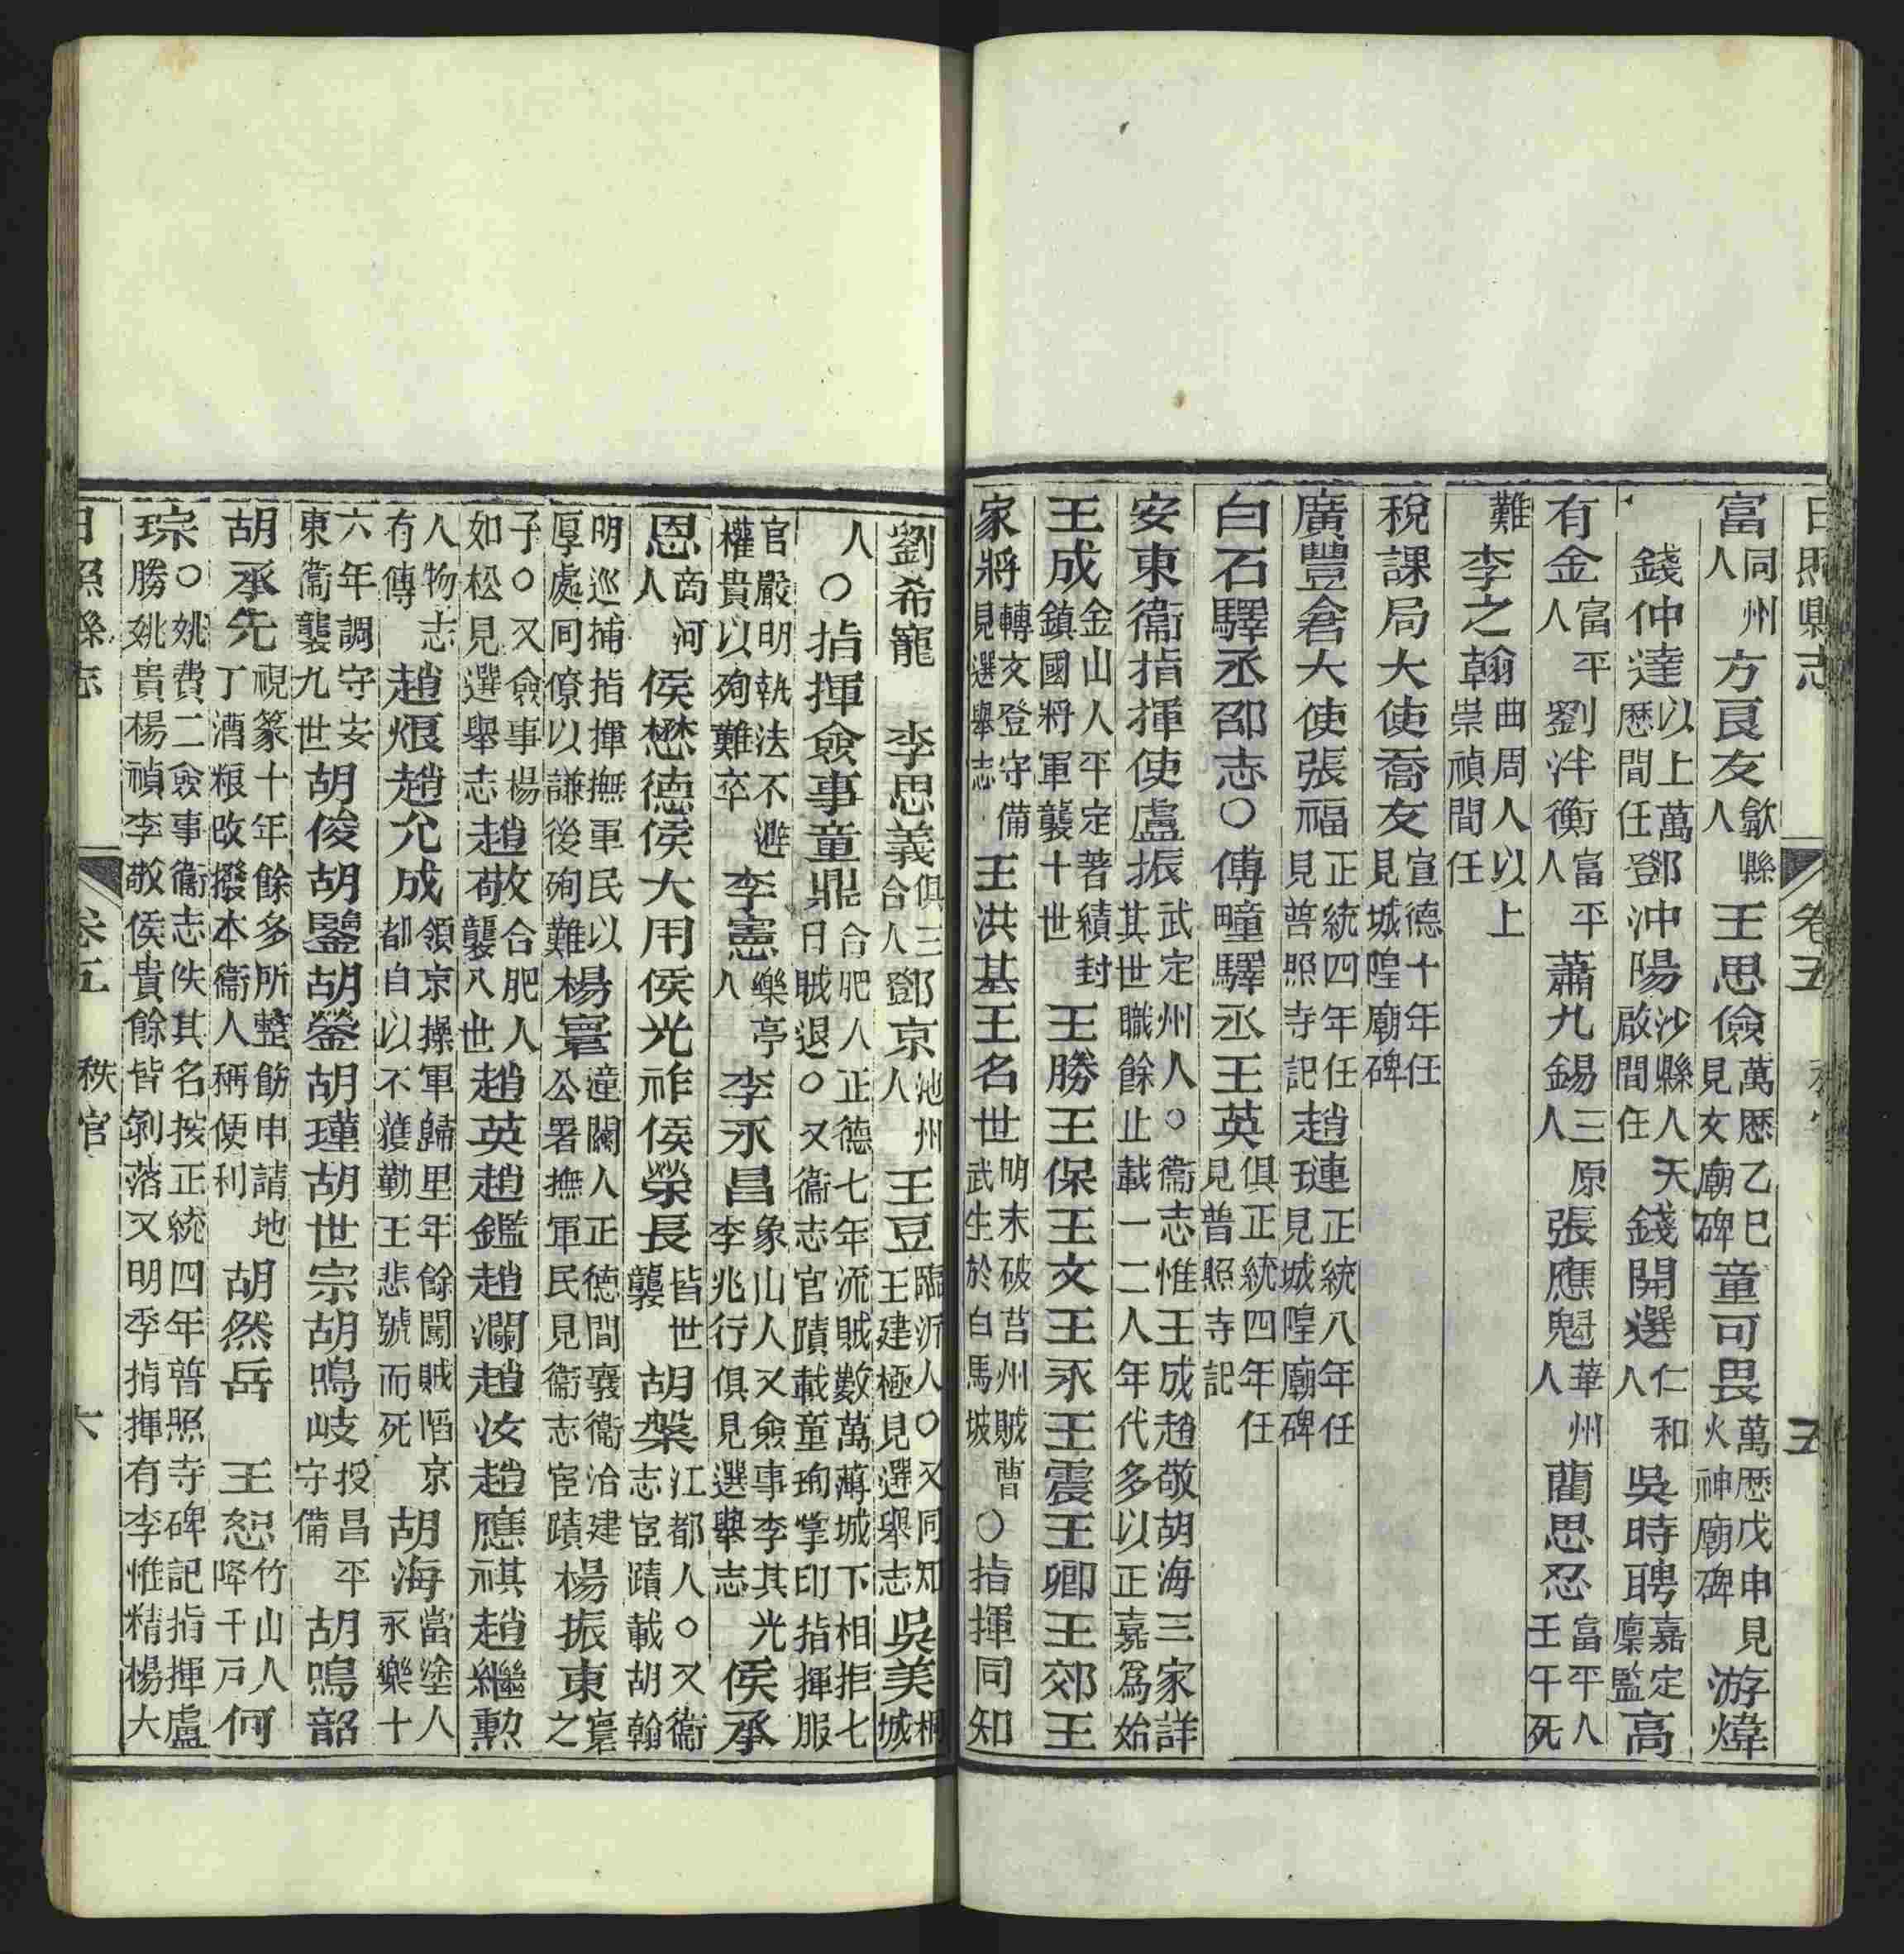 日照縣志 卷五 秩官 五
富同州人 方良友歙縣人 王思儉萬歷乙巳見玄廟碑 童可畏萬歷戊申見火神廟碑 游煒
錢仲達以上萬歷間任 鄧沖陽沙縣人天啟間任 錢開選仁和人 吳時聘嘉定廩監 高
有金富平人 劉泮衡富平人 蕭九錫三原人 張應魁華州人 藺思忍富平人壬午死
難 李之翰曲周人以上崇禎間任
稅課局大使喬友宣德十年任見城隍廟碑
廣豐倉大使張福正統四年任見普照寺記 趙璉正統八年任見城隍廟碑
白石驛丞邵志○傅疃驛丞王英俱正統四年任見普照寺記
安東衞指揮使盧振武定州人○衞志惟王成趙敬胡海三家詳其世職餘止載一二人年代多以正嘉為始
王成金山人平定著績封鎮國將軍襲十世 王勝王保王文王永王震王卿王郊王
家將轉文登守備見選舉志 王洪基王名世明末破莒州賊曹武生於白馬坡 ○指揮同知
劉希寵 李思義俱三合人 鄧京池州人 王豆臨沂人○又同知王建極見選舉志 吳美桐城
人○指揮僉事童鼎合肥人正德七年流賊數萬薄城下相拒七日賊退○又衞志官蹟載童珣掌印指揮服
官嚴明執法不避權貴以殉難卒 李憲樂亭人 李永昌象山人又僉事李其光李兆行俱見選舉志 侯承
恩商河人 侯懋德侯大用侯光祚侯榮長皆世襲 胡槃江都人○又衞志宦蹟載胡翰
明巡捕指揮撫軍民以厚處同僚以謙後殉難 楊寰潼關人正德間襄衞治建公署撫軍民見衞志宦蹟 楊振東寰之
子○又僉事楊如松見選舉志 趙敬合肥人襲八世 趙英趙鑑趙瀾趙汝趙應祺趙繼勲
人物志有傳 趙烺趙允成領京操軍歸里年餘闖賊陷京都自以不獲勤王悲號而死 胡海當塗人永樂十
六年調守安東衞襲九世 胡俊胡鑒胡鎣胡瑾胡世宗胡鳴岐授昌平守備 胡鳴韶
胡承先視篆十年餘多所整飭申請地丁漕粮改撥本衞人稱便利 胡然岳 王恕竹山人降千戸 何
琮○姚費二僉事衞志佚其名按正統四年普照寺碑記指揮盧琮勝姚貴楊禎李敬侯貴餘皆剝落又明季指揮有李惟精楊大
日照縣志 卷五 秩官 六